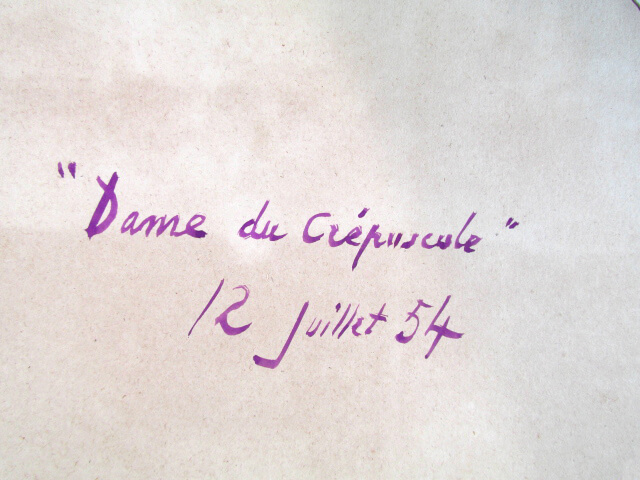 "Dame du Crépuscule"
12 Juillet 54